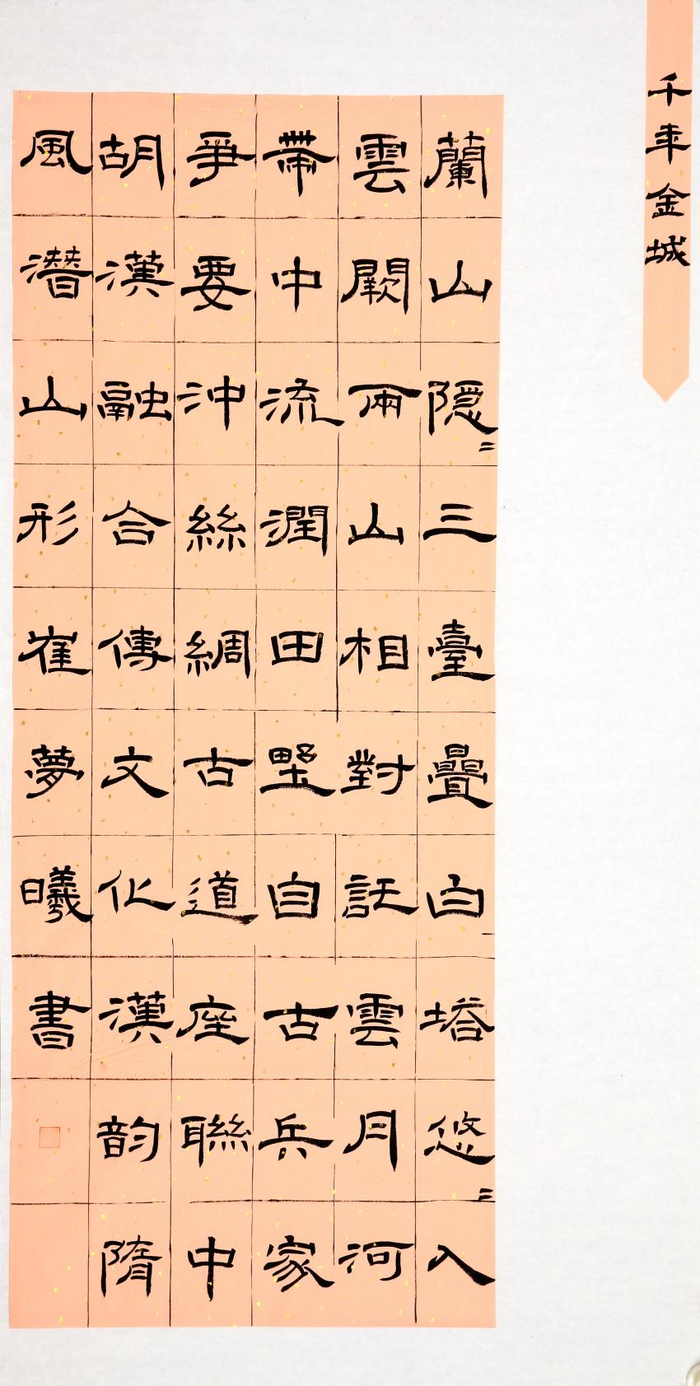 千年金城
蘭山隐〻三臺疊白塔悠〻入
雲闕兩山相對託雲月河
帶中流潤田墅自古兵家
爭要沖絲綢古道座聯中
胡漢融合傳文化漢韵隋
風潜山形崔夢曦書